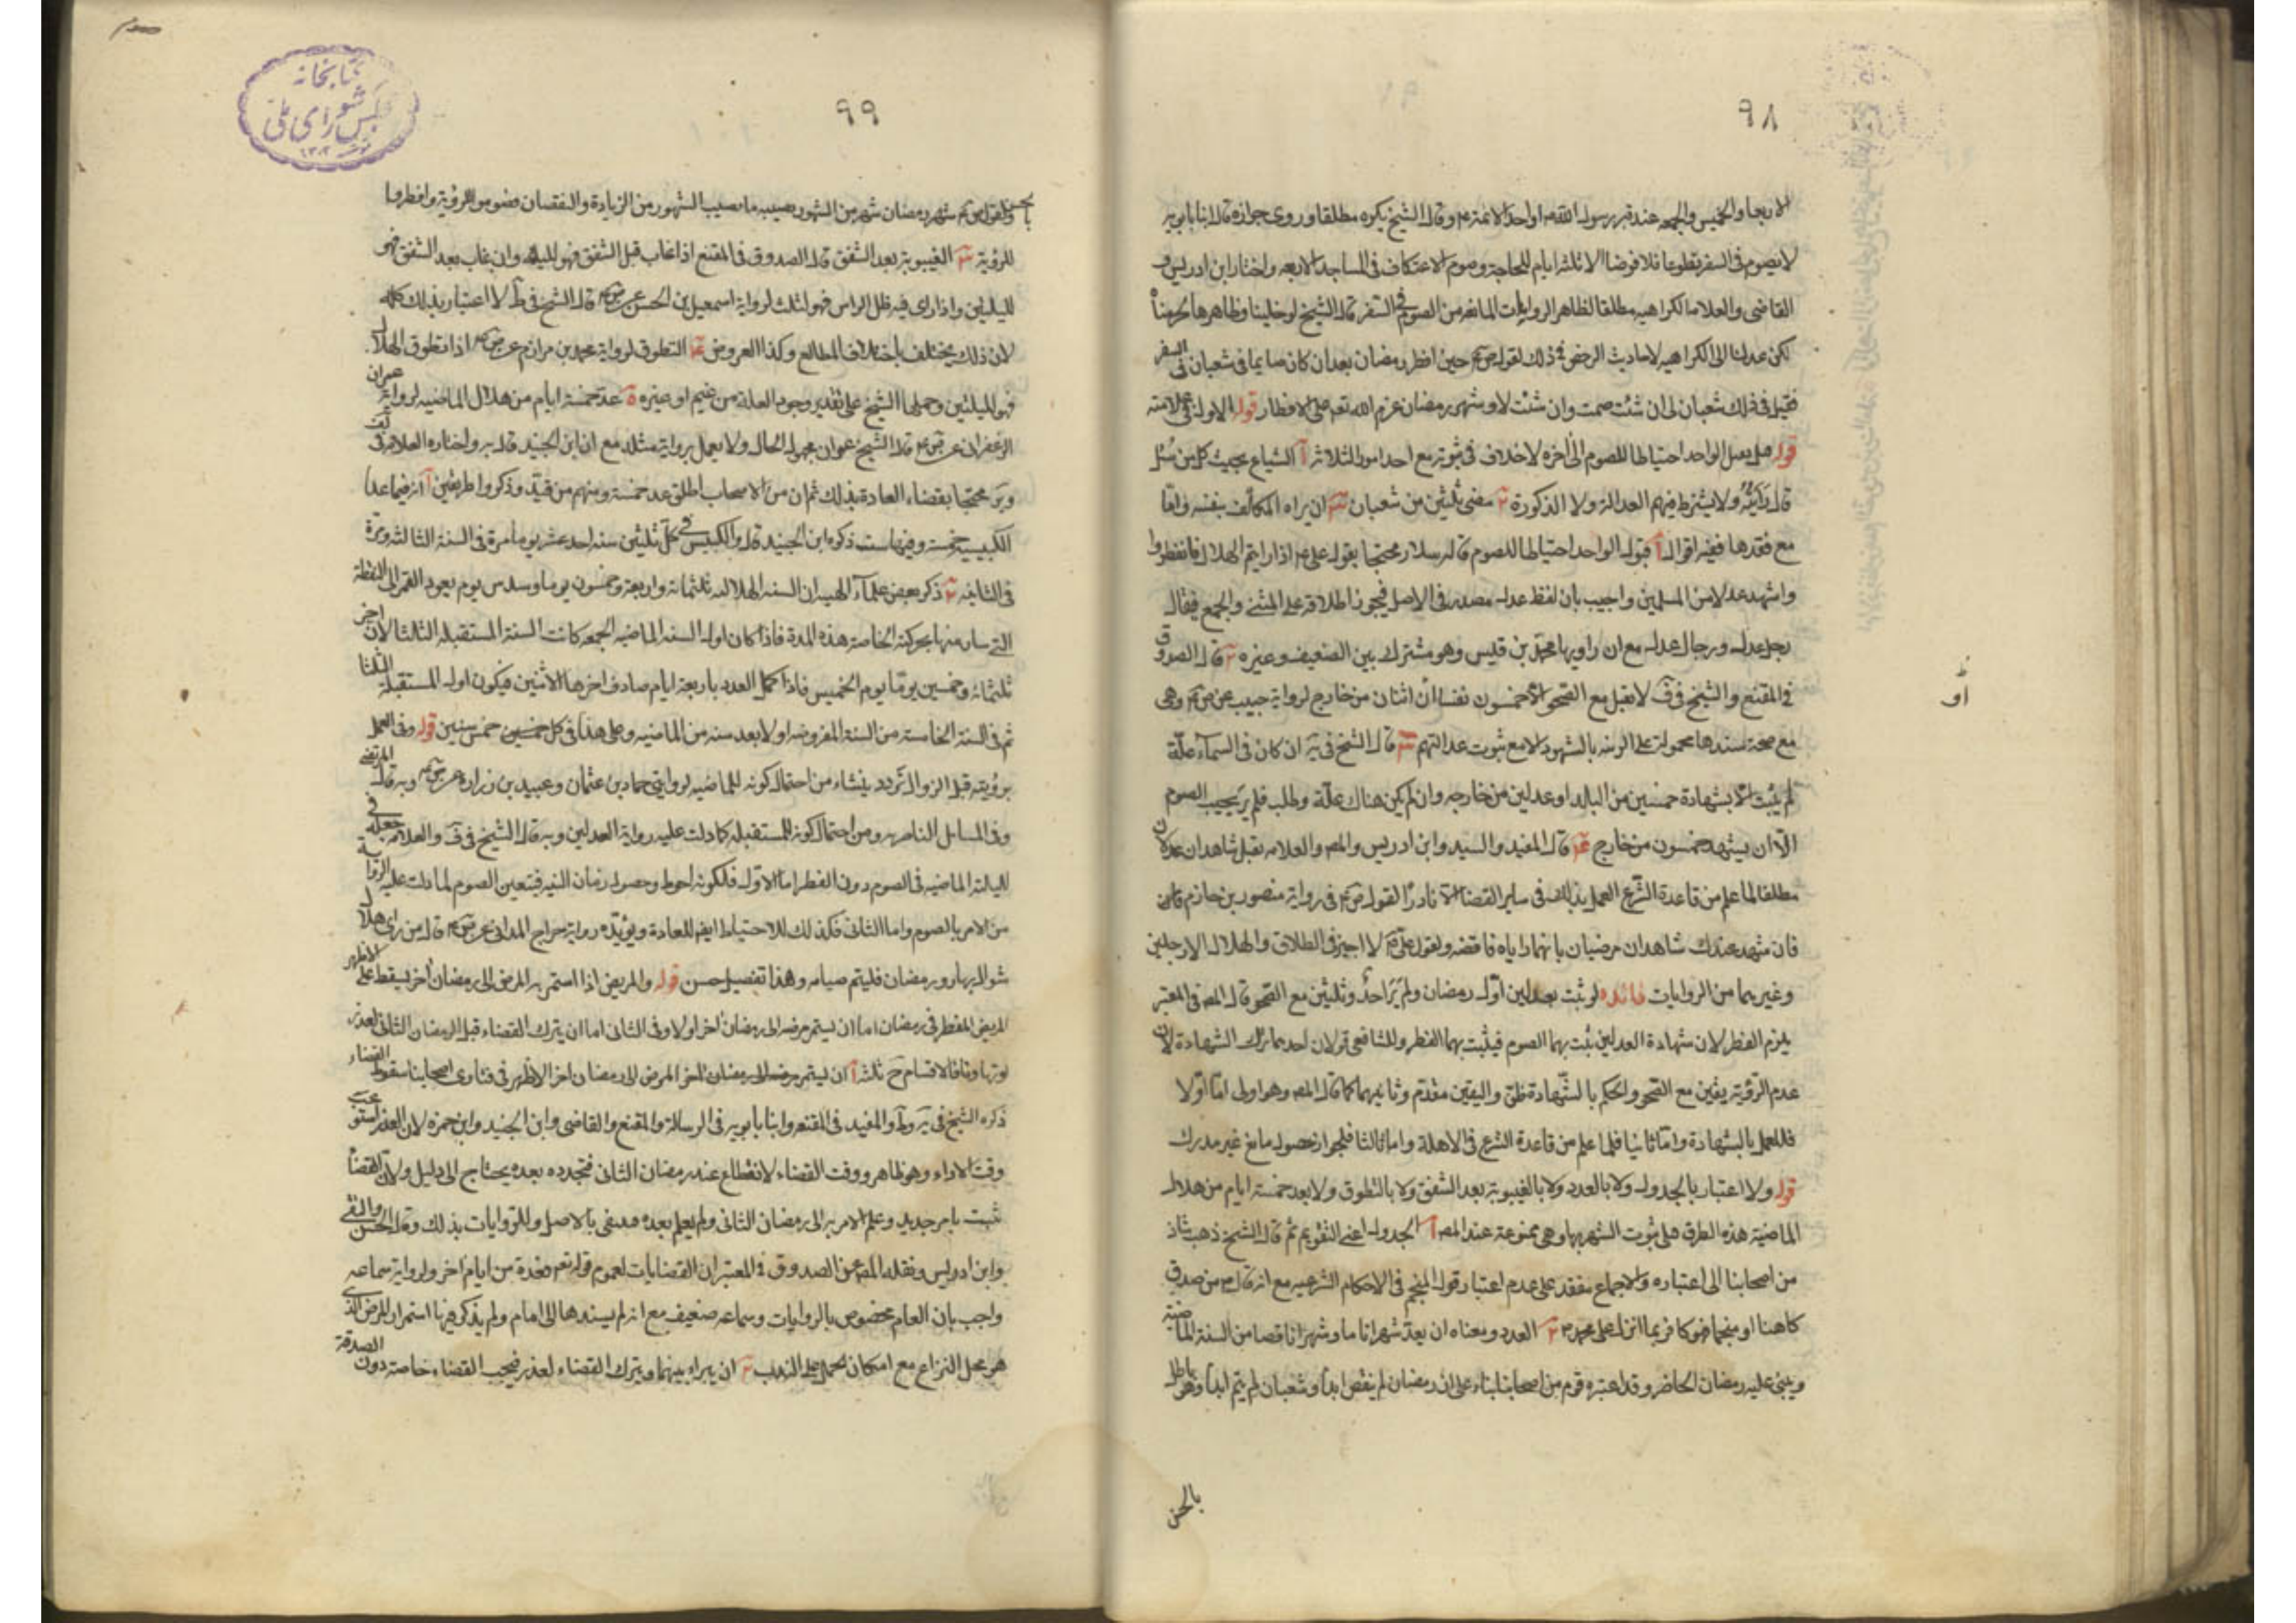 ٩٨
الاربعا والخميس والجمعه عند قبر رسول الله ص او احد الائمة ع وقال الشيخ يكره مطلقا وروى جوازه قال ابنا بابويه
لا يصوم فى السفر تطوعا ولا فرضا الا ثلثه ايام للحاجة وصوم الاعتكاف فى المساجد الاربعه واختار ابن ادريس و
القاضى والعلامه الكراهيه مطلقا لظاهر الروايات المانعه من الصوم فى السفر قال الشيخ لو خلينا وظاهرها لحرمناه
لكن عدلنا الى الكراهيه لاحاديث الرخص فى ذلك لقوله حين افطر رمضان بعد ان كان صايما فى شعبان فى السفر
فقيل فى ذلك شعبان لى ان شئت صمت وان شئت لا وشهر رمضان عزم الله تعم على الافطار قوله الاولة فى علامته
قوله هل يعمل الواحد احتياطا للصوم الى اخره لا خلاف فى ثبوته مع احد امور الثلاثه آ الشياع بحيث كل من سُئل
قال رَاَيتُه ولا يشترط فيهم العدالة ولا الذكورة ٢ مضى ثلثين من شعبان ٣ ان يراه المكلف بنفسه واما
مع فقدها ففيه اقوال آ قبول الواحد احتياطا للصوم قاله سلار محتجا بقول على ع اذا رايتم الهلال فافطروا
واشهد عدلا من المسلمين واجيب بان لفظ عدل مصدر فى الاصل فيجوز اطلاقه على المثنى والجمع فيقال
رجل عدل ورجال عدل مع ان راويها محمد بن قيس وهو مشترك بين الضعيف وغيره ٢ قال الصدوق
فى المقنع والشيخ فى ف لا يقبل مع الصحو الا خمسون نفسا او اثنان من خارج لرواية حبيب عن ص ع وهى
مع صحة سندها محمولة على الريبه بالشهود لا مع ثبوت عدالتهم ٣ قال الشيخ فى يه ان كان فى السمآء علّة
لم يثبت الا بشهادة خمسين من البلد او عدلين من خارجه وان لم يكن هناك علّة وطلب فلم يُرَ يجب الصوم
الا ان يشهد خمسون من خارج ٤ قال المفيد والسيد وابن ادريس والمص والعلامه يقبل شاهدان عدلان
مطلقا لما علم من قاعدة الشرع العمل بذلك فى ساير القضا الا نادرًا لقول ص ع فى رواية منصور بن حازم
فان شهد عندك شاهدان مرضيان بانهما راياه فاقضه ولقول على ع لا اجيز فى الطلاق والهلال الا رجلين
وغيرهما من الروايات فائده لو ثبت بعدلين اوّل رمضان ولم يُرَ احدٌ وثلثين مع الصحو قال المص فى المعتبر
يلزم الفطر لان شهادة العدلين يثبت بهما الصوم فيثبت بهما الفطر وللشافعى قولان احدهما ترك الشهادة لان
عدم الرؤية يقين مع الصحو والحكم بالشهادة ظن واليقين مقدم وثانيهما كما قال المص وهو اولى امّا اوّلا
فللعمل بالشهادة وامّا ثانيا فلما علم من قاعدة الشرع فى الاهلة واما ثالثا فلجواز حصول مانع غير مدرك
قوله ولا اعتبار بالجدول ولا بالعدد ولا بالغيبوبة بعد الشفق ولا بالتطوق ولا بعد خمسة ايام من هلال
الماضية هذه الطرق هل يثبت الشهر بها وهى ممنوعة عند المص آ الجدول اعنى التقويم ثم قال الشيخ ذهب شاذ
من اصحابنا الى اعتباره والاجماع منعقد على عدم اعتبار قول المنجم فى الاحكام الشرعيه مع انه قال ص من صدق
كاهنا او منجما فهو كافر بما انزل على محمد ص ٢ العدد ومعناه ان يعد شهرا تاما وشهرا ناقصا من السنة الماضية
ويبنى عليه رمضان الحاضر وقد اعتبره قوم من اصحابنا لبناء على ان رمضان لم ينقص ابدًا وشعبان لم يتم ابدا وهو باطل
بالحس
او
٩٩
بالحس ولقول ص ع شهر رمضان شهر من الشهور يصيبه ما يصيب الشهور من الزيادة والنقصان فصوموا للرؤية وافطروا
للرؤية ٣ الغيبوبة بعد الشفق قال الصدوق فى المقنع اذا غاب قبل الشفق فهو لليلة وان غاب بعد الشفق فهو
لليلتين واذا راى فيه ظل الراس فهو لثلث لرواية اسمعيل بن الحسن عن ص ع قال الشيخ فى ط لا اعتبار بذلك كله
لان ذلك يختلف باختلاف المطالع وكذا العروض ٤ التطوق لرواية محمد بن مرازم عن ص ع اذا تطوق الهلال
فهو لليلتين وحملها الشيخ على تقدير وجود العلة من غيم او غيره ٥ عد خمسة ايام من هلال الماضيه لرواية عمران
الزعفرانى عن ص ع قال الشيخ عمران مجهول الحال ولا يعمل برواية مثله مع ان ابن الجنيد قال به واختاره العلامه فى لف
محتجا بقضاء العادة بذلك ثم ان من الاصحاب اطلق عد خمسة ومنهم من قيّد وذكروا طريقين آ انه فيما عدا
الكبيسيه خمسة وفيها ست ذكره ابن الجنيد قال والكبيس فى كل ثلثين سنه احد عشر يوما مرة فى السنة الثالثه ومرة
فى الثانيه ٢ ذكر بعض علمآء الهيه ان السنه الهلاليه ثلثمائة واربعة وخمسون يوما وسدس يوم يعود القمر الى النقطة
التى سار منها بحركته الخاصة هذه المدة فاذا كان اول السنه الماضيه الجمعه كانت السنة المستقبله الثلثا لان اخر
ثلثمائة وخمسين يوما يوم الخميس فاذا كمل العدد باربعة ايام صادف اخرها الاثنين فيكون اول المستقبلة الثلثا
ثم فى السنة الخامسة من السنة المفروضه اولا بعد سنه من الماضيه وعلى هذا فى كل خمسين خمس سنين قوله وفى العمل
برؤيته قبل الزوال تردد ينشاء من احتمال كونه للماضيه لروايتى حماد بن عثمان وعبيد بن زراره عن ص ع وبه قال المرتضى
وفى المسائل الناصريه ومن احتمال كونه للمستقبله كما دلت عليه رواية العدلين وبه قال الشيخ فى ف والعلامه جعله فى
لليلة الماضيه فى الصوم دون الفطر اما الاول فلكونه احوط وحصول زمان النيه فيتعين الصوم لما دلت عليه الرواية
من الامر بالصوم واما الثانى فكذلك للاحتياط ايضا للعادة ويؤيّده رواية جراح المداينى عن ص ع قال من راى هلال
شوال بنهار رمضان فليتم صيامه وهذا تفصيل حسن قوله والمريض اذا استمر به المرض الى رمضان آخر ليسقط على الاظهر
المريض المفطر فى رمضان اما ان يستمر مرضه الى رمضان اخر او لا وفى الثانى اما ان يترك القضاء قبل الرمضان الثانى لعذر
او تهاونا فالاقسام ح ثلثه آ ان يستمر مرضه الى رمضان اخر المرض الى رمضان اخر الاظهر فى فتاوى اصحابنا سقوط القضاء
ذكره الشيخ فى يه وط والمفيد فى المقنعه وابنا بابويه فى الرسالة والمقنع والقاضى وابن الجنيد وابن حمزه لان العذر استوعب
وقت الاداء وهو ظاهر ووقت القضاء لانقطاع عند رمضان الثانى فتجدده بعده يحتاج الى دليل ولان القضا
ثبت بامر جديد وعلم الامر به الى رمضان الثانى ولم يعلم بعده فينفى بالاصل وللروايات بذلك وقال الحسن والتقى
وابن ادريس ونقله المص عن الصدوق فى المعتبر ان القضا بات لعموم قوله تعم فعدة من ايام اخر ولرواية سماعه
واجيب بان العام مخصوص بالروايات وسماعه ضعيف مع انه لم يسندها الى امام ولم يذكر فيها استمرار المرض الذى
هو محل النزاع مع امكان الحمل على الندب ٢ ان يبرا بينهما ويترك القضاء لعذر فيجب القضاء خاصة دون الصدقة
كتابخانه
مجلس شوراى ملى
١٣٠٢